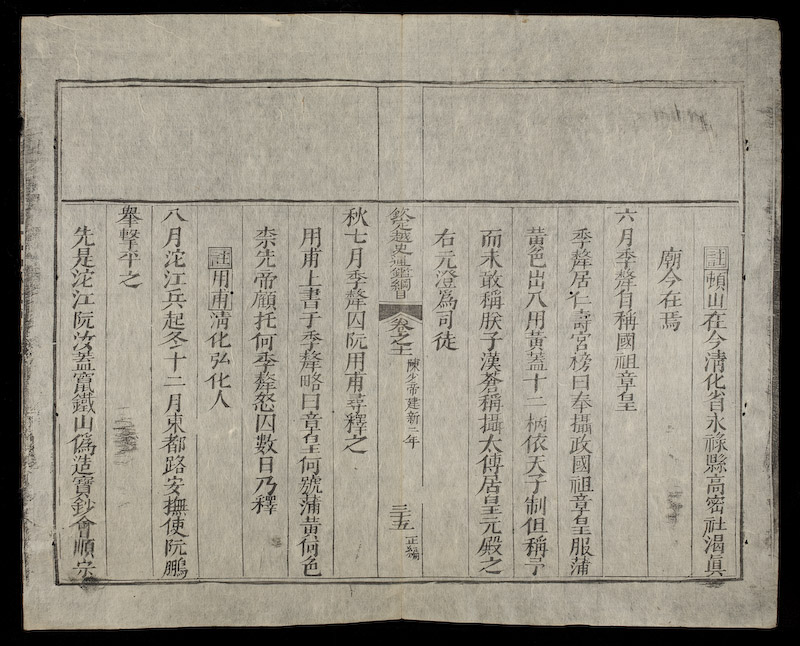 註頓山在今清化省永祿縣高密社渴眞
廟今在焉
六月季犛自稱國祖章皇
季犛居仁壽宮榜曰奉攝政國祖章皇服蒲
黃色出入用黃蓋十二柄依天子制但稱予
而未敢稱朕子漢蒼稱攝太傅居皇元殿之
右元澄爲司徒
欽定越史通鑑綱目 卷之十一 陳少帝建新二年 三十五 正編
秋七月季犛囚阮用甫尋釋之
用甫上書于季犛略曰章皇何號蒲黃何色
柰先帝顧托何季犛怒囚數日乃釋
註用甫清化弘化人
八月沱江兵起冬十二月東都路安撫使阮鵬
舉擊平之
先是沱江阮汝蓋竄鐵山僞造寶鈔會順宗